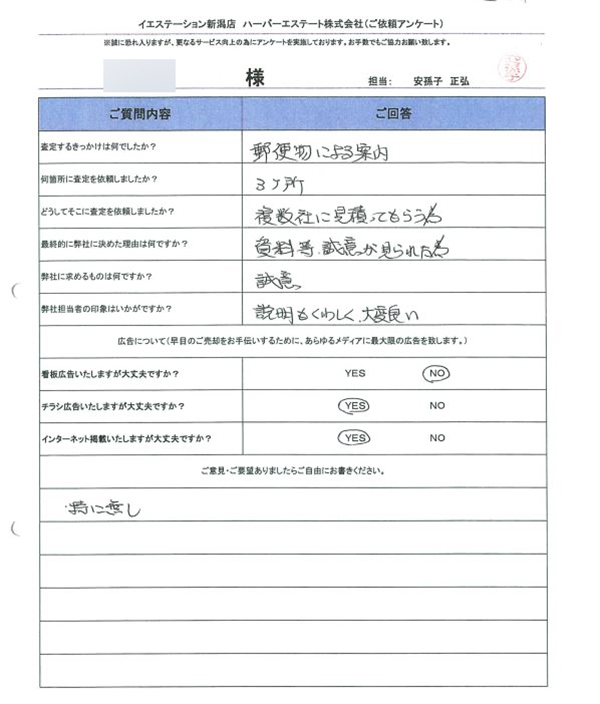 イエステーション新潟店 ハーバーエステート株式会社(ご依頼アンケート)
※誠に恐れ入りますが、更なるサービス向上の為にアンケートを実施しております。お手数でもご協力お願い致します。
様 担当: 安孫子 正弘
ご質問内容 ご回答
査定するきっかけは何でしたか? 郵便物による案内
何箇所に査定を依頼しましたか? 3ヶ所
どうしてそこに査定を依頼しましたか? 複数社に見積ってもらう為
最終的に弊社に決めた理由は何ですか? 資料等、誠意が見られた為
弊社に求めるものは何ですか? 誠意
弊社担当者の印象はいかがですか? 説明もくわしく、大変良い
広告について(早目のご売却をお手伝いするために、あらゆるメディアに最大限の広告を致します。)
看板広告いたしますが大丈夫ですか? YES NO
チラシ広告いたしますが大丈夫ですか? YES NO
インターネット掲載いたしますが大丈夫ですか? YES NO
ご意見・ご要望ありましたらご自由にお書きください。
特に無し